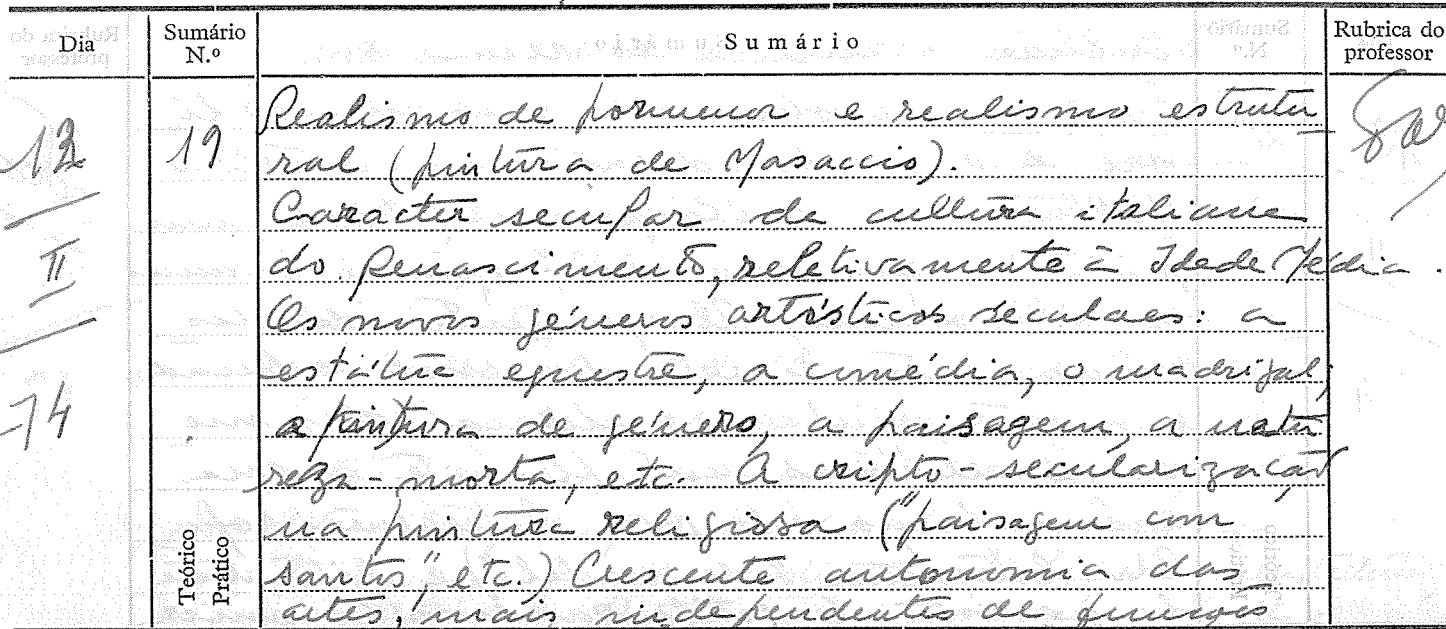 Dia Sumário N.º Sumário Rubrica do professor
Realismo de pormenor e realismo estrutu
12 19 ral (pintura de Masaccio).
Caracter secular da cultura italiana
II do Renascimento, relativamente à Idade Média.
Os novos géneros artísticos seculares: a
estátua equestre, a comédia, o madrigal,
74 a pintura de género, a paisagem, a natu
reza-morta, etc. A cripto-secularização
na pintura religiosa ("paisagem com
santos", etc.) Crescente autonomia das
artes, mais independentes de funções
Teórico
Prático